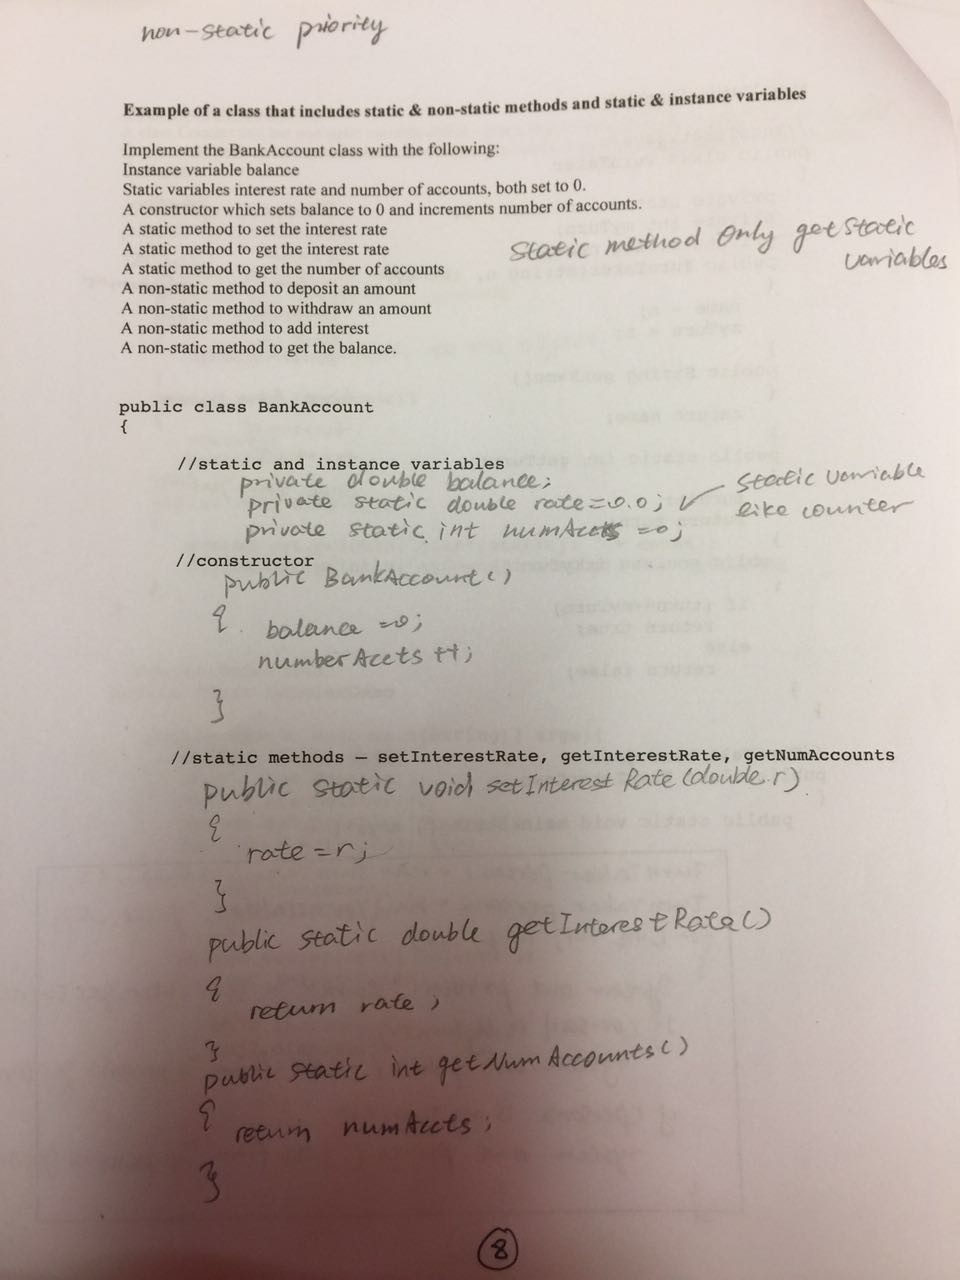 non-static priority
Example of a class that includes static & non-static methods and static & instance variables
Implement the BankAccount class with the following:
Instance variable balance
Static variables interest rate and number of accounts, both set to 0.
A constructor which sets balance to 0 and increments number of accounts.
A static method to set the interest rate
A static method to get the interest rate
A static method to get the number of accounts
A non-static method to deposit an amount
A non-static method to withdraw an amount
A non-static method to add interest
A non-static method to get the balance.
Static method Only get static
variables
public class BankAccount
{
//static and instance variables
private double balance;
private static double rate=0.0;
private static int numAccts =0;
static variable
like counter
//constructor
public BankAccount()
{ balance =0;
numberAccts ++;
}
//static methods – setInterestRate, getInterestRate, getNumAccounts
public static void setInterestRate(double r)
{
rate=r;
}
public static double getInterestRate()
{
return rate;
}
public static int getNumAccounts()
{
return numAccts;
}
8